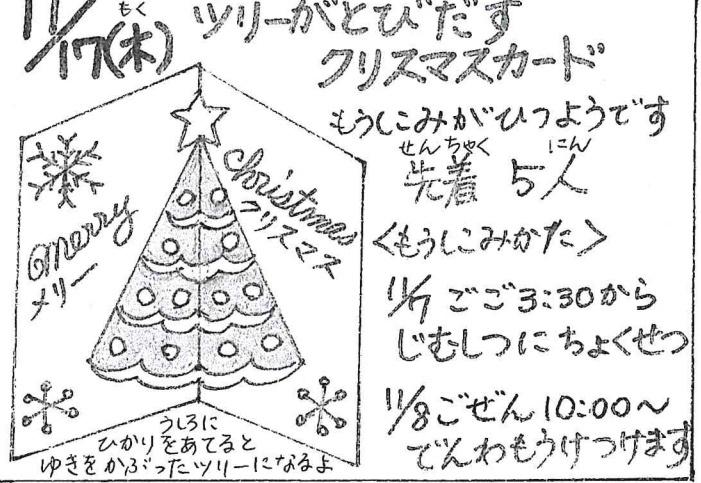 11/17(木)
もく
ツリーがとびだす
クリスマスカード
もうしこみがひつようです
せんちゃく にん
先着 5人
<もうしこみかた>
11/7 ごご3:30から
じむしつにちょくせつ
11/8ごぜん10:00～
でんわもうけつけます
Merry
メリー
Christmas
クリスマス
うしろに
ひかりをあてると
ゆきをかぶったツリーになるよ